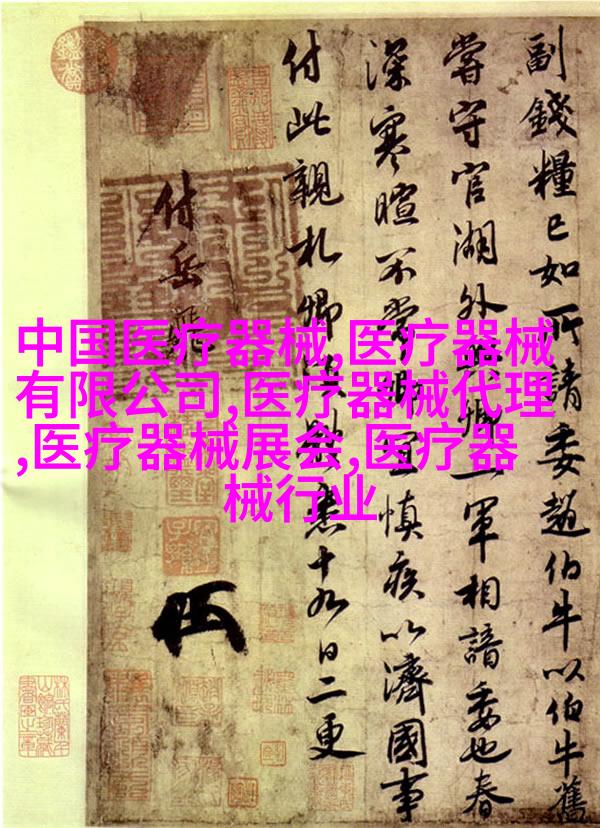 中国医疗器械,医疗器械
有限公司,医疗器械代理
,医疗器械展会,医疗器
械行业
副錢糧已如所請委趙伯牛以伯牛舊
嘗守官湖外卿一軍相諳委也春
深寒暄不常卿宜慎疾以濟國事
付此親札卿悉十九日二更
付岳飛